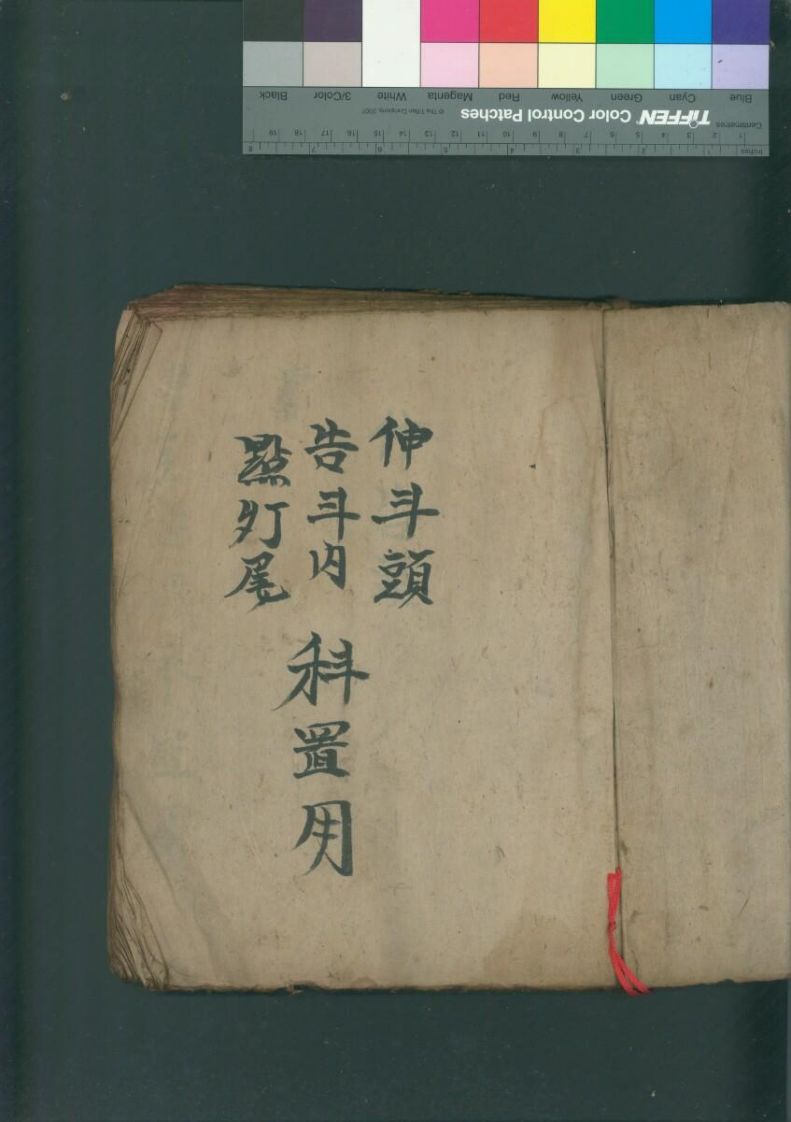 伸斗頭
告斗内
點灯尾
科置用
Blue Cyan Green Yellow Red Magenta White 3/Color Black
TIFFEN Color Control Patches © The Tiffen Company, 2007
Centimetres 1 2 3 4 5 6 7 8 9 10 11 12 13 14 15 16 17 18 19
Inches 1 2 3 4 5 6 7 8